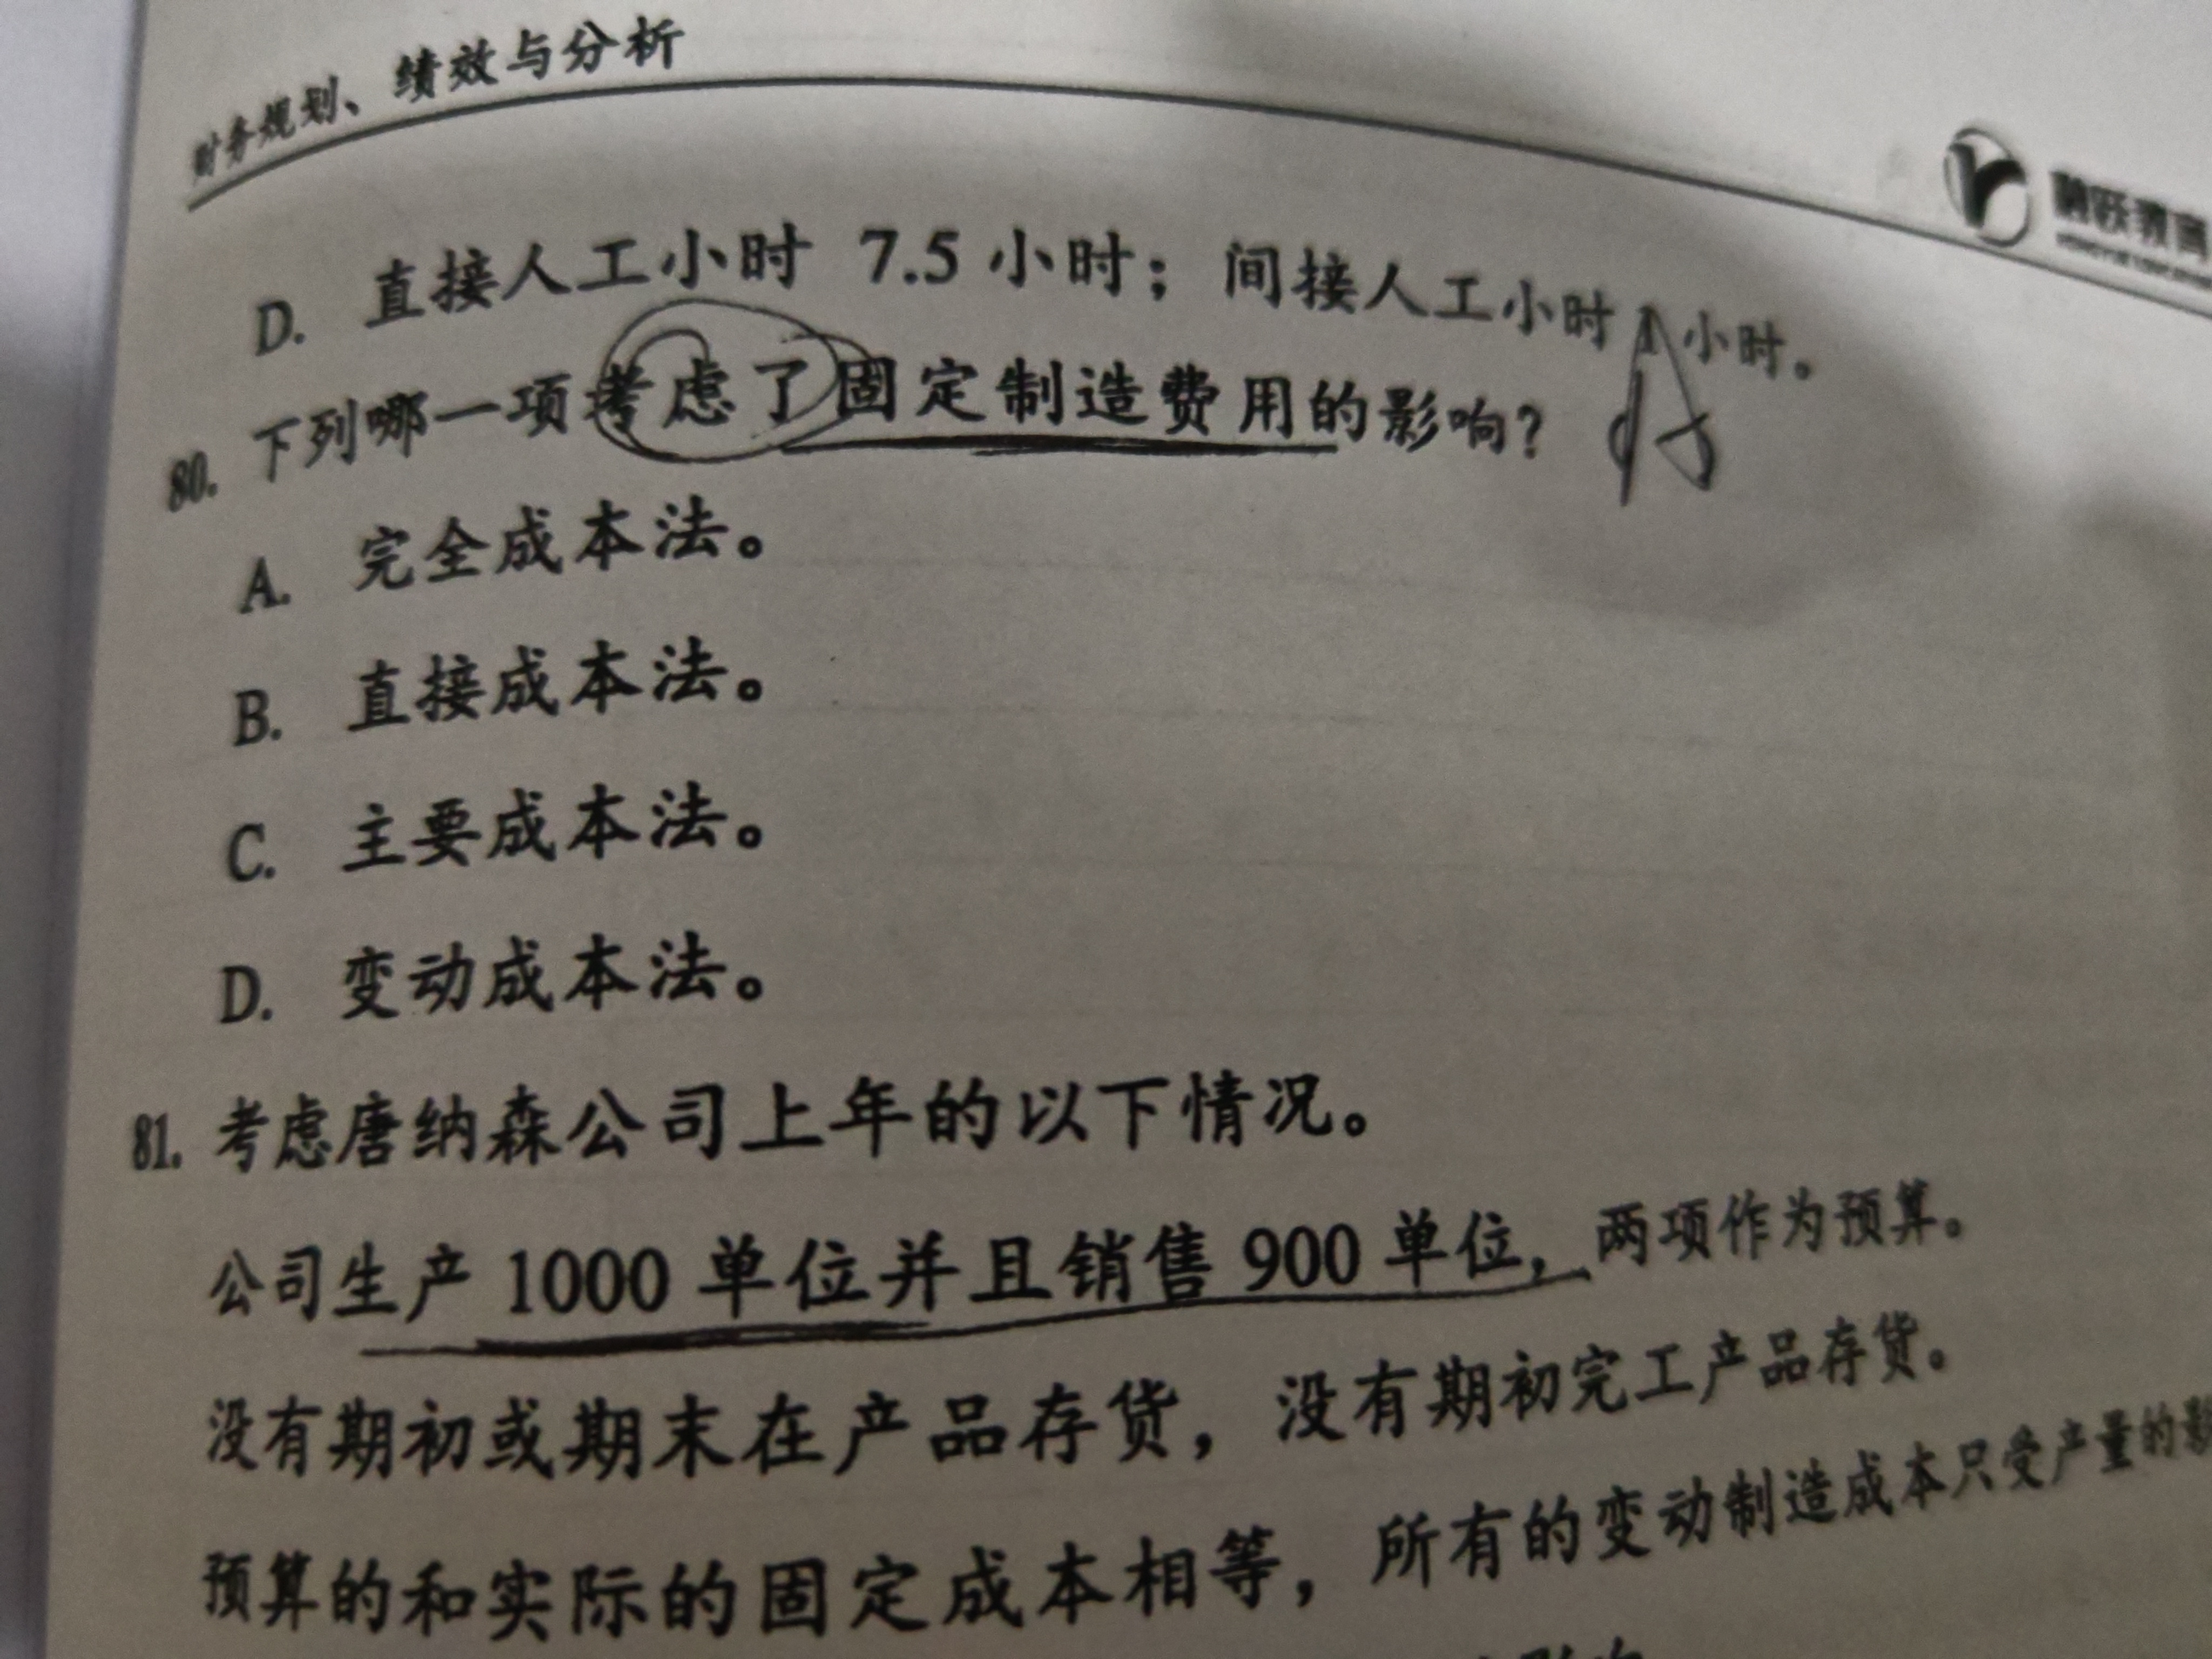 财务规划、绩效与分析
融跃教育
D. 直接人工小时 7.5 小时；间接人工小时 1 小时。
80. 下列哪一项考虑了固定制造费用的影响？ A
A. 完全成本法。
B. 直接成本法。
C. 主要成本法。
D. 变动成本法。
81. 考虑唐纳森公司上年的以下情况。
公司生产 1000 单位并且销售 900 单位，两项作为预算。
没有期初或期末在产品存货，没有期初完工产品存货。
预算的和实际的固定成本相等，所有的变动制造成本只受产量的影